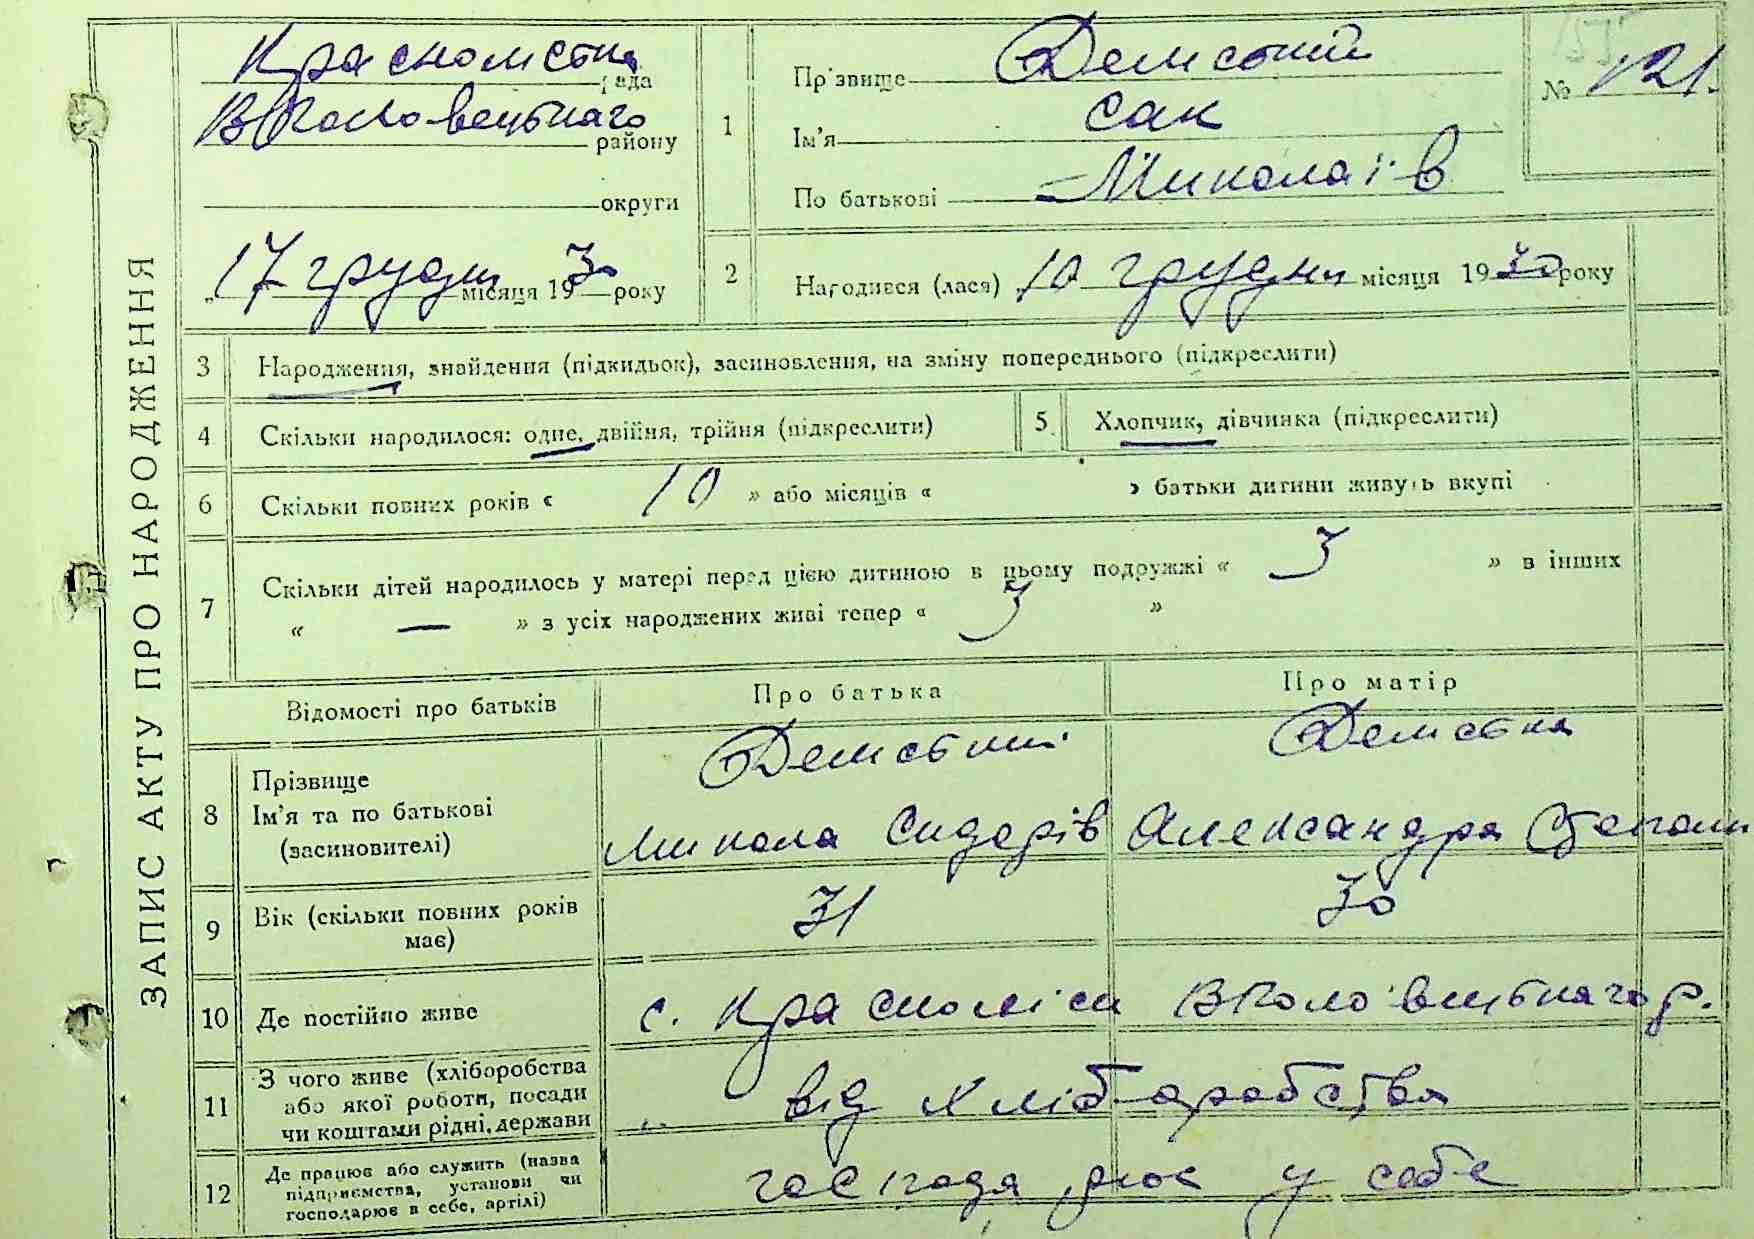 ЗАПИС АКТУ ПРО НАРОДЖЕННЯ
рада
району
округи
17 грудня місяця 1930 року
№ 121.
1
Прізвище Демський
Ім'я Сак
По батькові Миколаїв
2 Народився (лася) 10 грудня місяця 1930 року
3 Народження, знайдення (підкидьок), засиновлення, на зміну попереднього (підкреслити)
4 Скільки народилося: одне, двійня, трійня (підкреслити)
5 Хлопчик, дівчинка (підкреслити)
6 Скільки повних років « 10 » або місяців « » батьки дитини живуть вкупі
7 Скільки дітей народилось у матері перед цією дитиною в цьому подружжі « 3 » в інших
« — » з усіх народжених живі тепер « 3 »
Відомості про батьків
Про батька
Про матір
8
Прізвище
Ім'я та по батькові
(засиновителі)
Демський
Микола Сидорів
Демська
Александра
9
Вік (скільки повних років
має)
31
30
10 Де постійно живе
с.
11
З чого живе (хліборобства
або якої роботи, посади
чи коштами рідні, держави
від хліборобства
12
Де працює або служить (назва
підприємства, установи чи
господарює в себе, артілі)
у себе